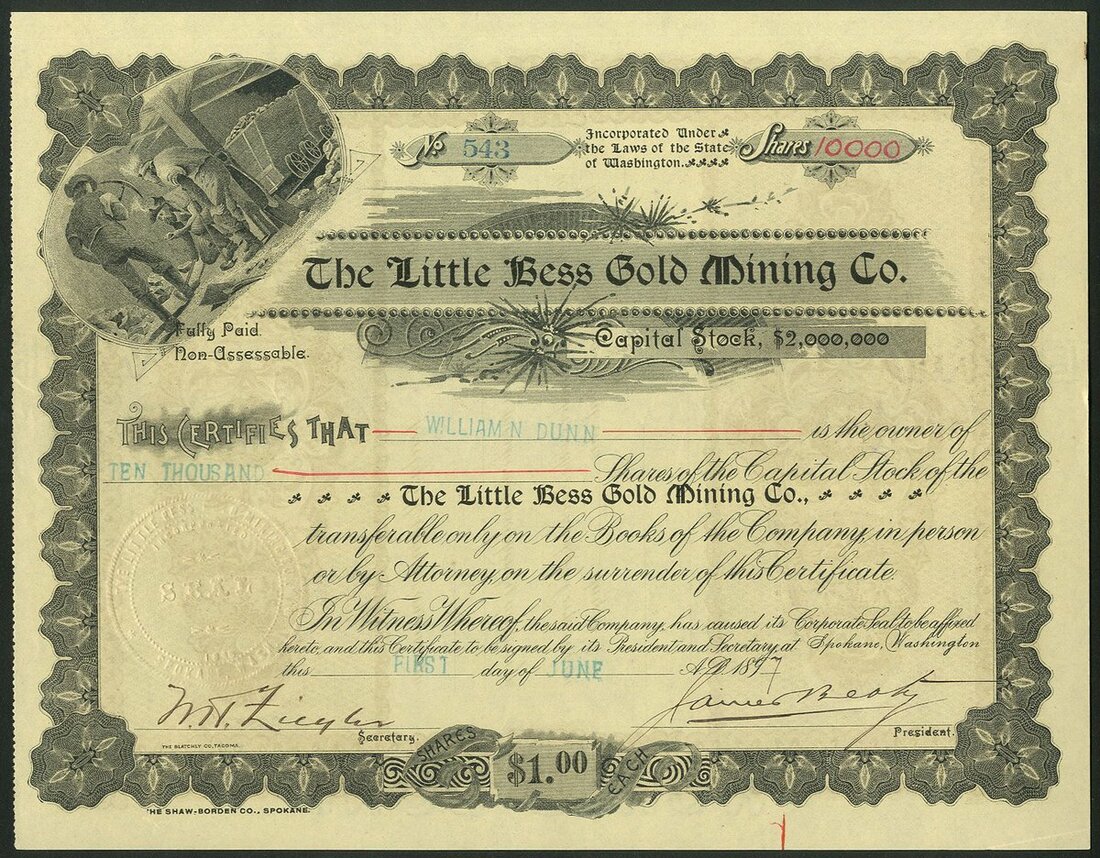 No 543
Incorporated Under
the Laws of the State
of Washington.
Shares 10000
The Little Bess Gold Mining Co.
Capital Stock, $2,000,000
Fully Paid
Non-Assessable.
THIS CERTIFIES THAT WILLIAM N DUNN is the owner of
TEN THOUSAND Shares of the Capital Stock of the
The Little Bess Gold Mining Co.,
transferable only on the Books of the Company, in person
or by Attorney, on the surrender of this Certificate.
In Witness Whereof, the said Company, has caused its Corporate Seal to be affixed
hereto, and this Certificate to be signed by its President and Secretary, at Spokane, Washington
this FIRST day of JUNE A.D. 1897
SEAL
Secretary.
President.
THE BLATCHLY CO, TACOMA.
SHARES $1.00 EACH
HE SHAW-BORDEN CO., SPOKANE.